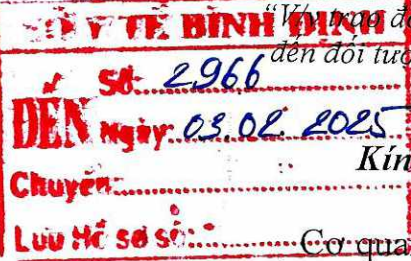 SỞ Y TẾ BÌNH ĐỊNH
"V/v trao đổ
đến đối tượ
Số: 2966
ĐẾN Ngày: 03.02.2025
Kín
Chuyển:
Lưu Hồ sơ số:
Cơ qua